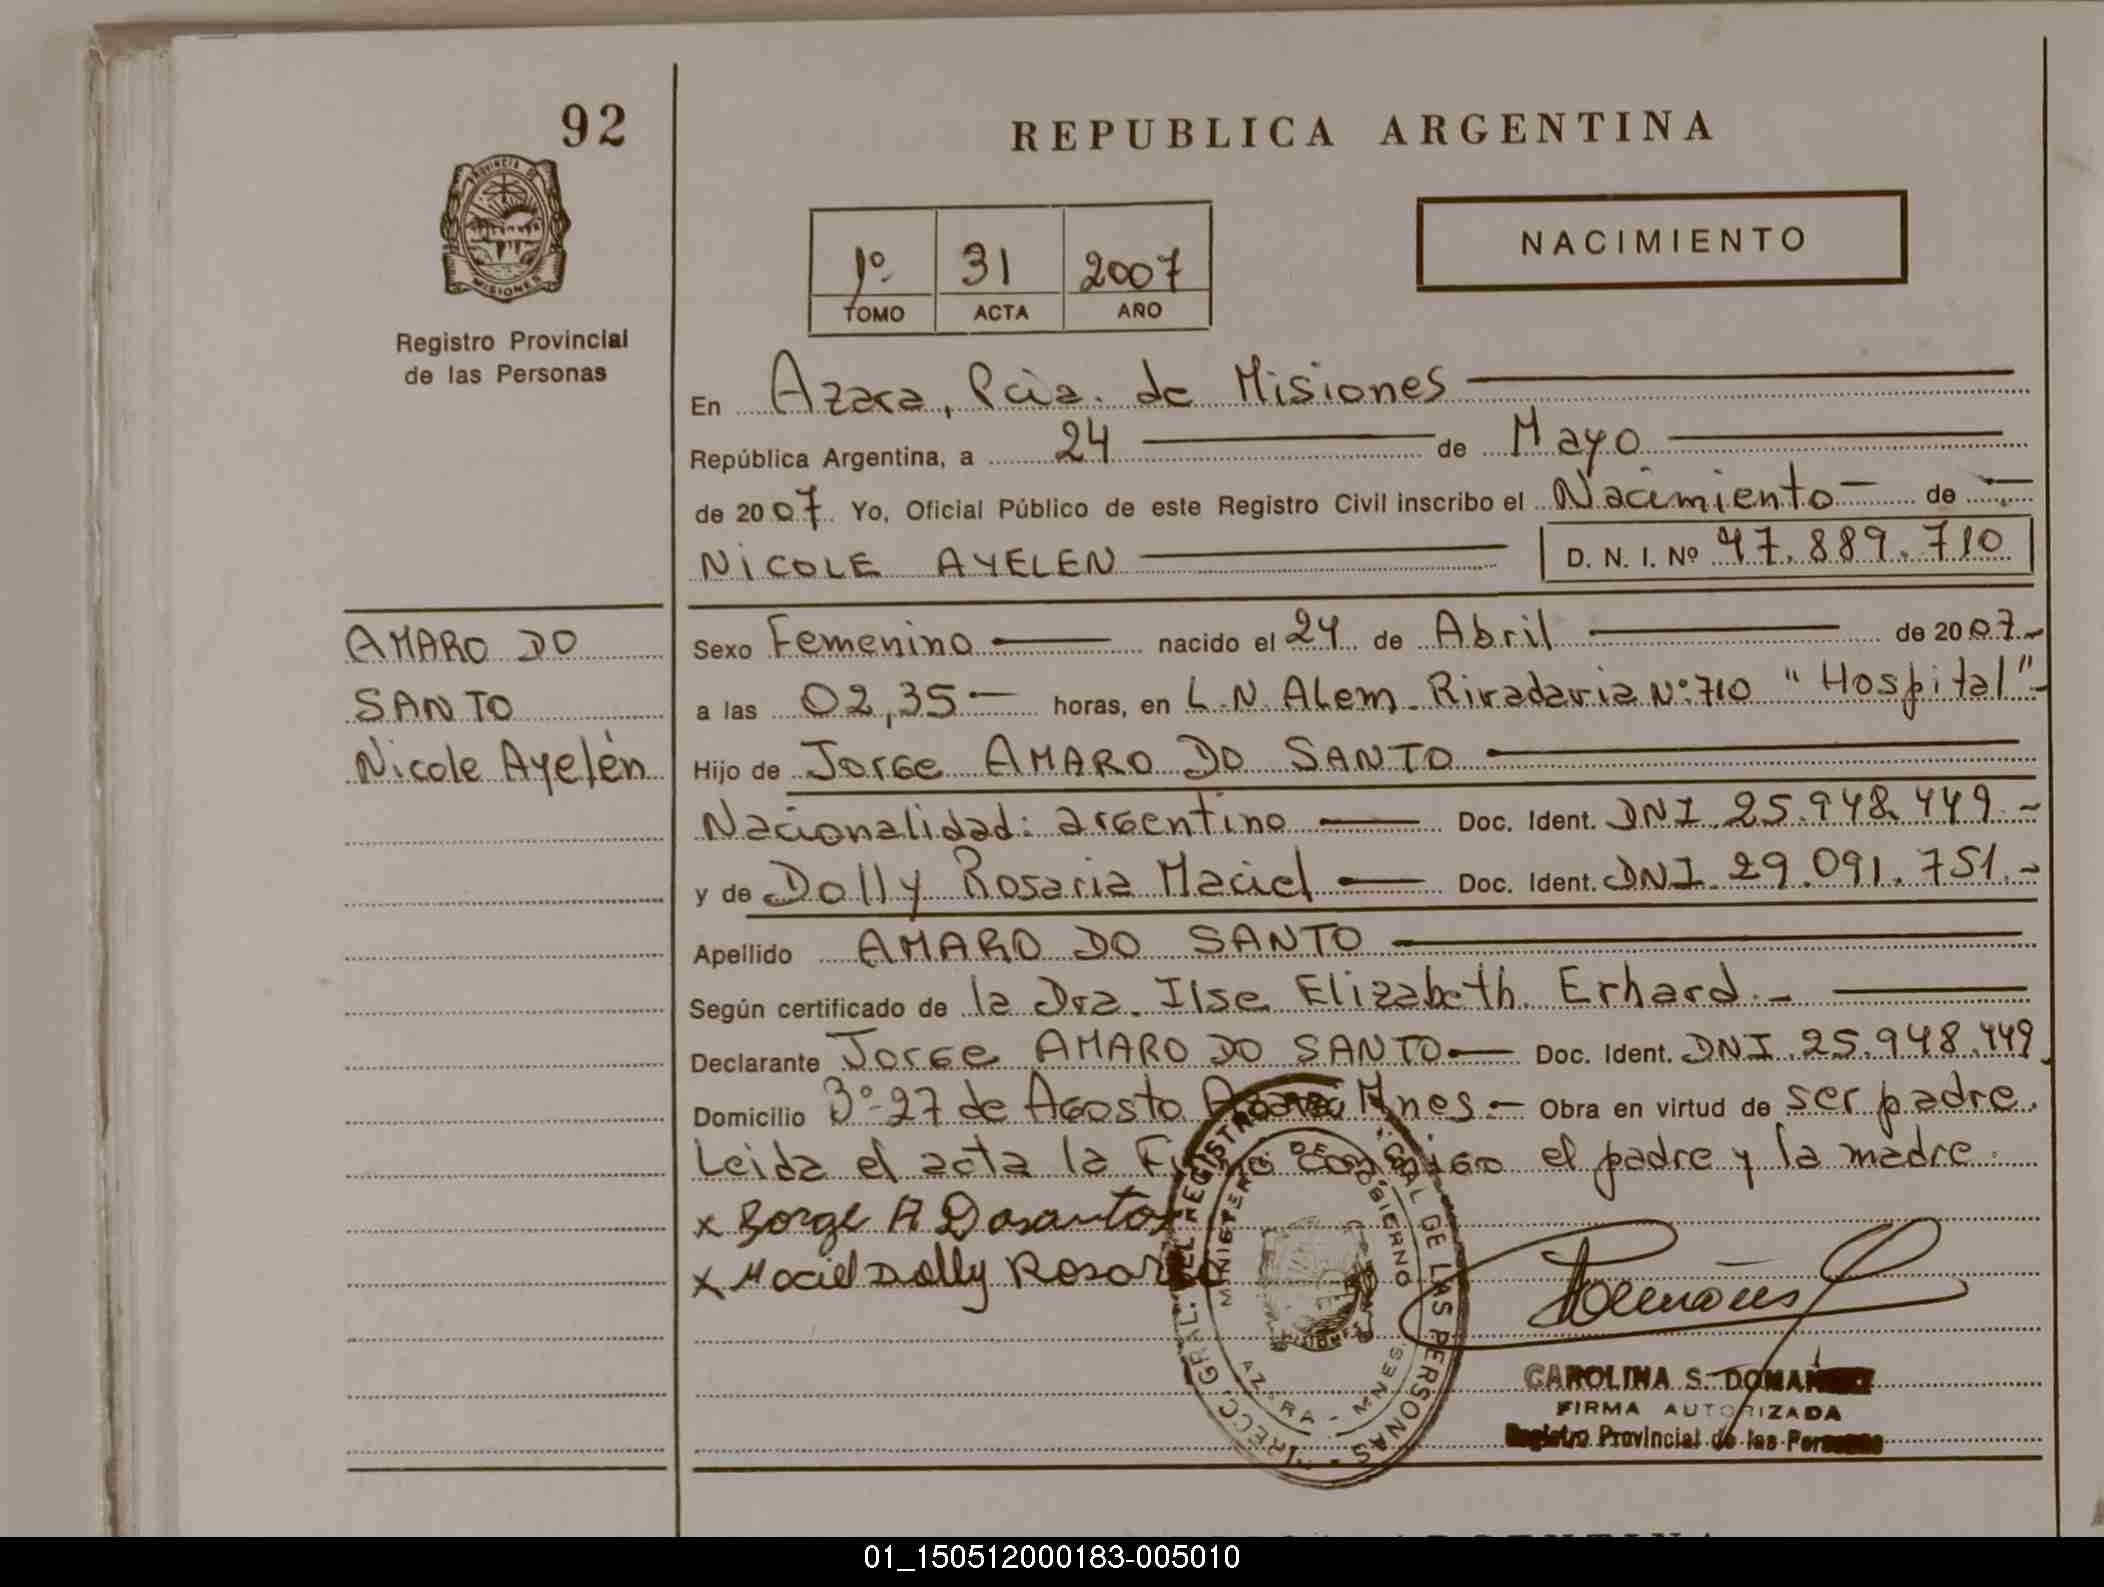 92
REPUBLICA ARGENTINA
PROVINCIA DE
MISIONES
Registro Provincial
de las Personas
1º 31 2007
TOMO ACTA AÑO
NACIMIENTO
En Azara, Pcia. de Misiones
República Argentina, a 24 de Mayo
de 2007 Yo, Oficial Público de este Registro Civil inscribo el Nacimiento de
NICOLE AYELEN D. N. I. Nº 47.889.710
AMARO DO
SANTO
Nicole Ayelén
Sexo Femenino nacido el 24 de Abril de 2007.-
a las 02,35 horas, en L.N. Alem. Rivadavia Nº:710 "Hospital"-
Hijo de Jorge AMARO DO SANTO
Nacionalidad: argentino Doc. Ident. DNI 25.948.449.-
y de Dolly Rosaria Maciel Doc. Ident. DNI 29.091.751.-
Apellido AMARO DO SANTO
Según certificado de la Dra. Ilse Elizabeth Erhard.-
Declarante Jorge AMARO DO SANTO Doc. Ident. DNI 25.948.449.
Domicilio Bº-27 de Agosto Azara Mnes.- Obra en virtud de ser padre.
Leida el acta la Firma conmigo el padre y la madre.
x Jorge A Dosantos
x Maciel Dolly Rosaria
DIRECC. GRAL. DEL REGISTRO PCIAL DE LAS PERSONAS
MINISTERIO DE GOBIERNO
MISIONES
AZARA - MNES.
CAROLINA S.
FIRMA AUTORIZADA
Registro Provincial de las Personas
01_150512000183-005010